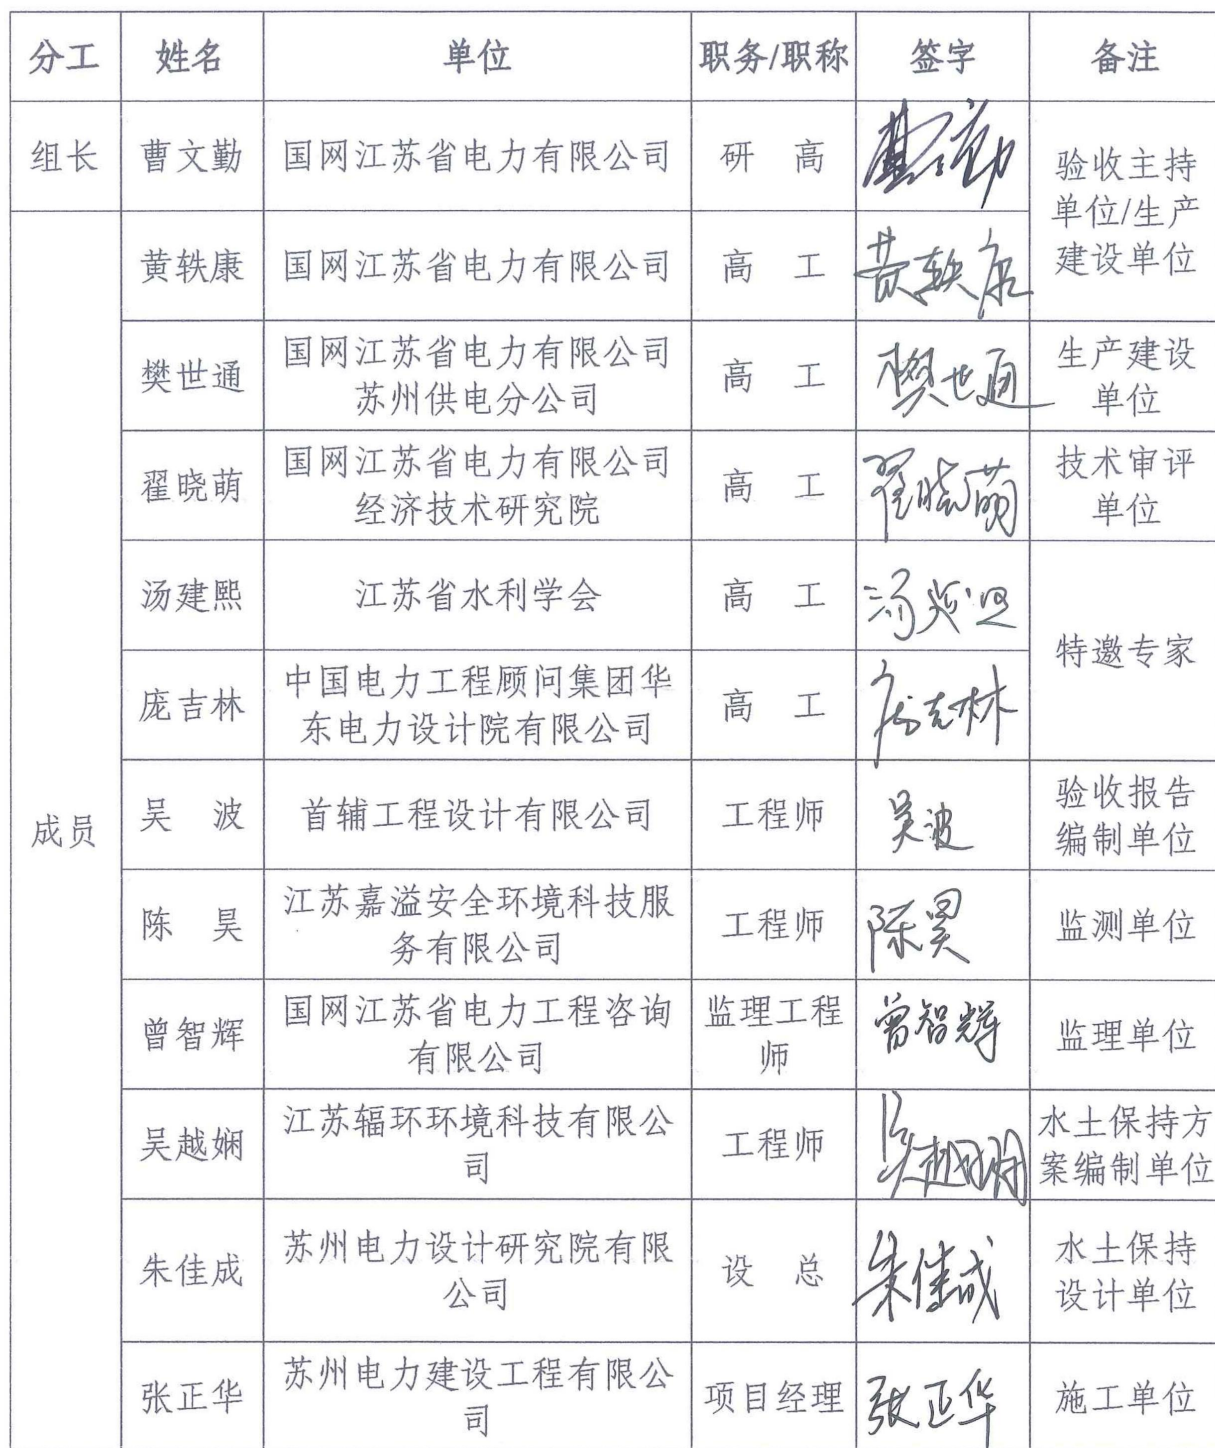 分工 姓名 单位 职务/职称 签字 备注
组长 曹文勤 国网江苏省电力有限公司 研 高
验收主持
单位/生产
建设单位
成员
黄轶康 国网江苏省电力有限公司 高 工 黄轶康
樊世通 国网江苏省电力有限公司
苏州供电分公司
高 工 樊世通
生产建设
单位
翟晓萌 国网江苏省电力有限公司
经济技术研究院
高 工 翟晓萌
技术审评
单位
汤建熙 江苏省水利学会 高 工
特邀专家
庞吉林 中国电力工程顾问集团华
东电力设计院有限公司
高 工 庞吉林
吴 波 首辅工程设计有限公司 工程师 吴波
验收报告
编制单位
陈 昊 江苏嘉溢安全环境科技服
务有限公司
工程师 陈昊 监测单位
曾智辉 国网江苏省电力工程咨询
有限公司
监理工程
师
曾智辉 监理单位
吴越娴 江苏辐环环境科技有限公
司
工程师
水土保持方
案编制单位
朱佳成 苏州电力设计研究院有限
公司
设 总 朱佳成
水土保持
设计单位
张正华 苏州电力建设工程有限公
司
项目经理 张正华 施工单位